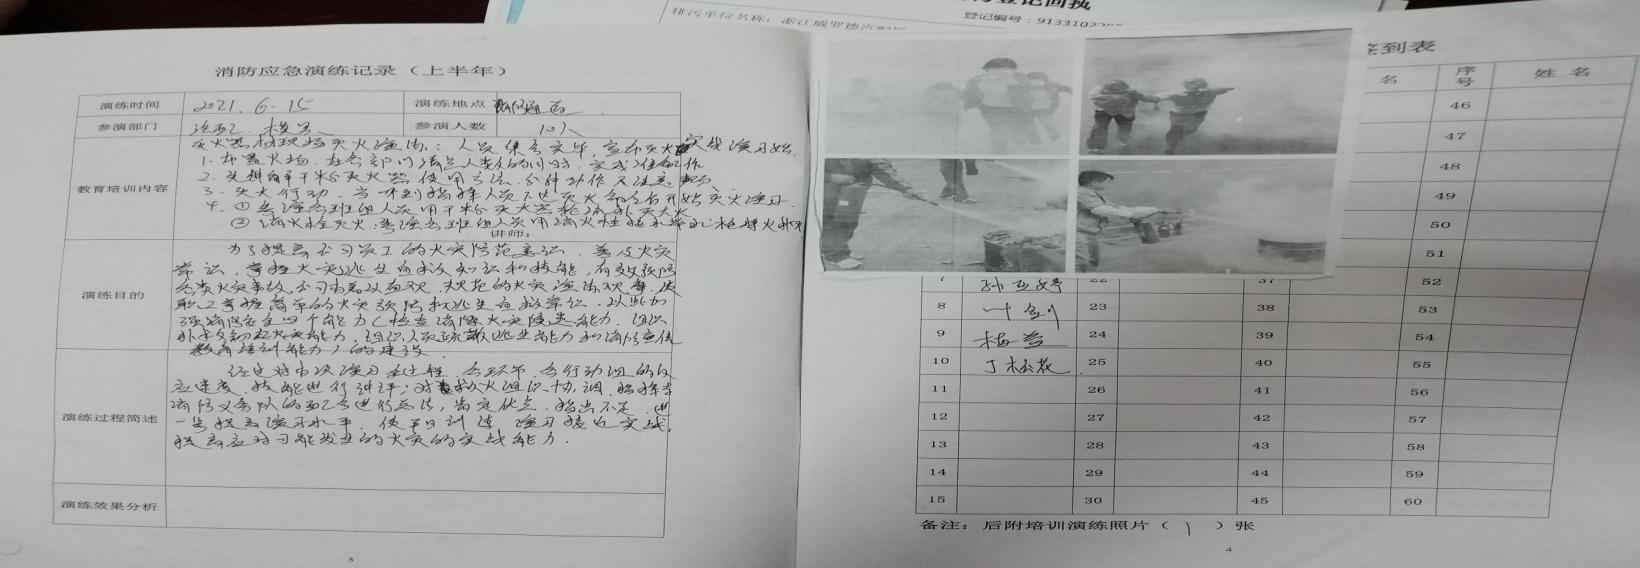 登记回执
登记编号：913310
排污单位名称：浙江威罗德汽配
消防应急演练记录（上半年）
演练时间 2021.6-15 演练地点
参演部门 参演人数 10人
教育培训内容
灭火器材现场灭火演练：人员集合完毕，宣布灭火实战演习开始
1.布置火场，在各部门清点人数的同时，完成准备工作
2.
3.灭火行动，当听到指挥人员下达灭火命令后开始灭火演习
4.①参演各班组人员用干粉灭火器轮流扑灭大火
②消火栓灭火：参演各班组人员用消火栓
讲师：
演练目的
为了提高公司员工的火灾防范意识，普及火灾
常识，掌握火灾逃生自救知识和技能，有效预防
各类火灾事故，
职工掌握简单的火灾预防和逃生自救常识，以此加
强消防安全四个能力（检查消除火灾隐患能力，组织
扑救初起火灾能力，组织人员疏散逃生能力和消防宣传
教育培训能力）的建设.
演练过程简述
经过对本次演习全过程，各环节，各行动组的反
应速度，技能进行讲评；对救火组织，协调，指挥与
消防义务队的配合进行总结，肯定优点，指出不足，进
一步提高演习水平，使平日训练，演习接近实战，
提高应对可能发生的火灾的实战能力.
演练效果分析
3
到表
名 序号 姓 名
46
47
48
49
50
51
7 22 37 52
8 叶剑 23 38 53
9 24 39 54
10 25 40 55
11 26 41 56
12 27 42 57
13 28 43 58
14 29 44 59
15 30 45 60
备注：后附培训演练照片（ 1 ）张
4